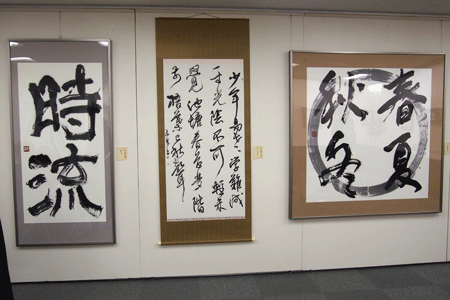 時流
少年易老学難成一
寸光陰不可軽未
覺池塘春草夢階
前梧葉已秋聲
春夏
秋冬